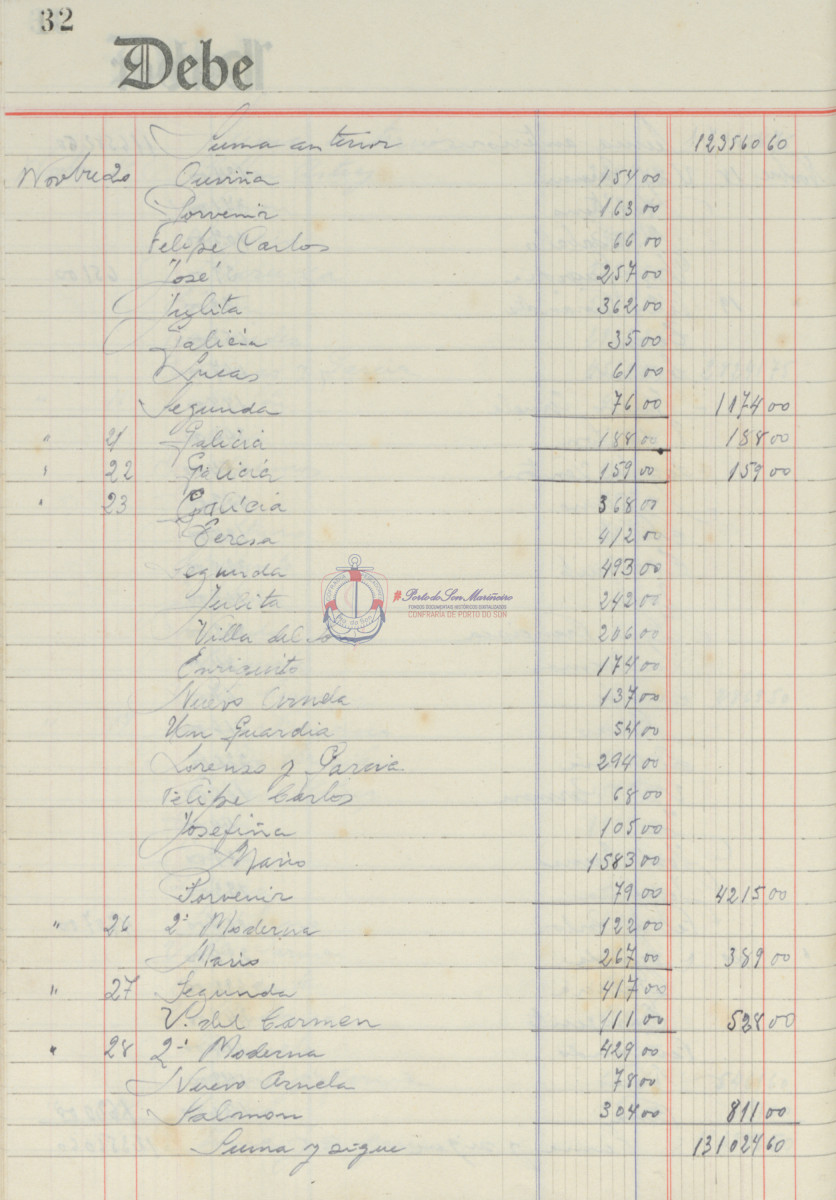 32
Debe
Suma anterior 123560 60
Novbre 20 Ouviña 154 00
Porvenir 163 00
Felipe Carlos 66 00
José 257 00
Julita 362 00
Galicia 35 00
Lucas 61 00
Segunda 76 00 1174 00
" 21 Galicia 188 00 188 00
" 22 Galicia 159 00 159 00
" 23 Galicia 368 00
Teresa 412 00
Segunda 493 00
Julita 242 00
Villa del 206 00
Enriquito 174 00
Nuevo Arnela 137 00
Un Guardia 54 00
Lorenzo y Garcia 294 00
Felipe Carlos 68 00
Josefiña 105 00
Mario 1583 00
Porvenir 79 00 4215 00
" 26 2ª Moderna 122 00
Mario 267 00 389 00
" 27 Segunda 417 00
V. del Carmen 111 00 528 00
" 28 2ª Moderna 429 00
Nuevo Arnela 78 00
Salmon 304 00 811 00
Suma y sigue 131024 60
#Porto do Son Mariñeiro
FONDOS DOCUMENTAIS HISTÓRICOS DIXITALIZADOS
CONFRARÍA DE PORTO DO SON